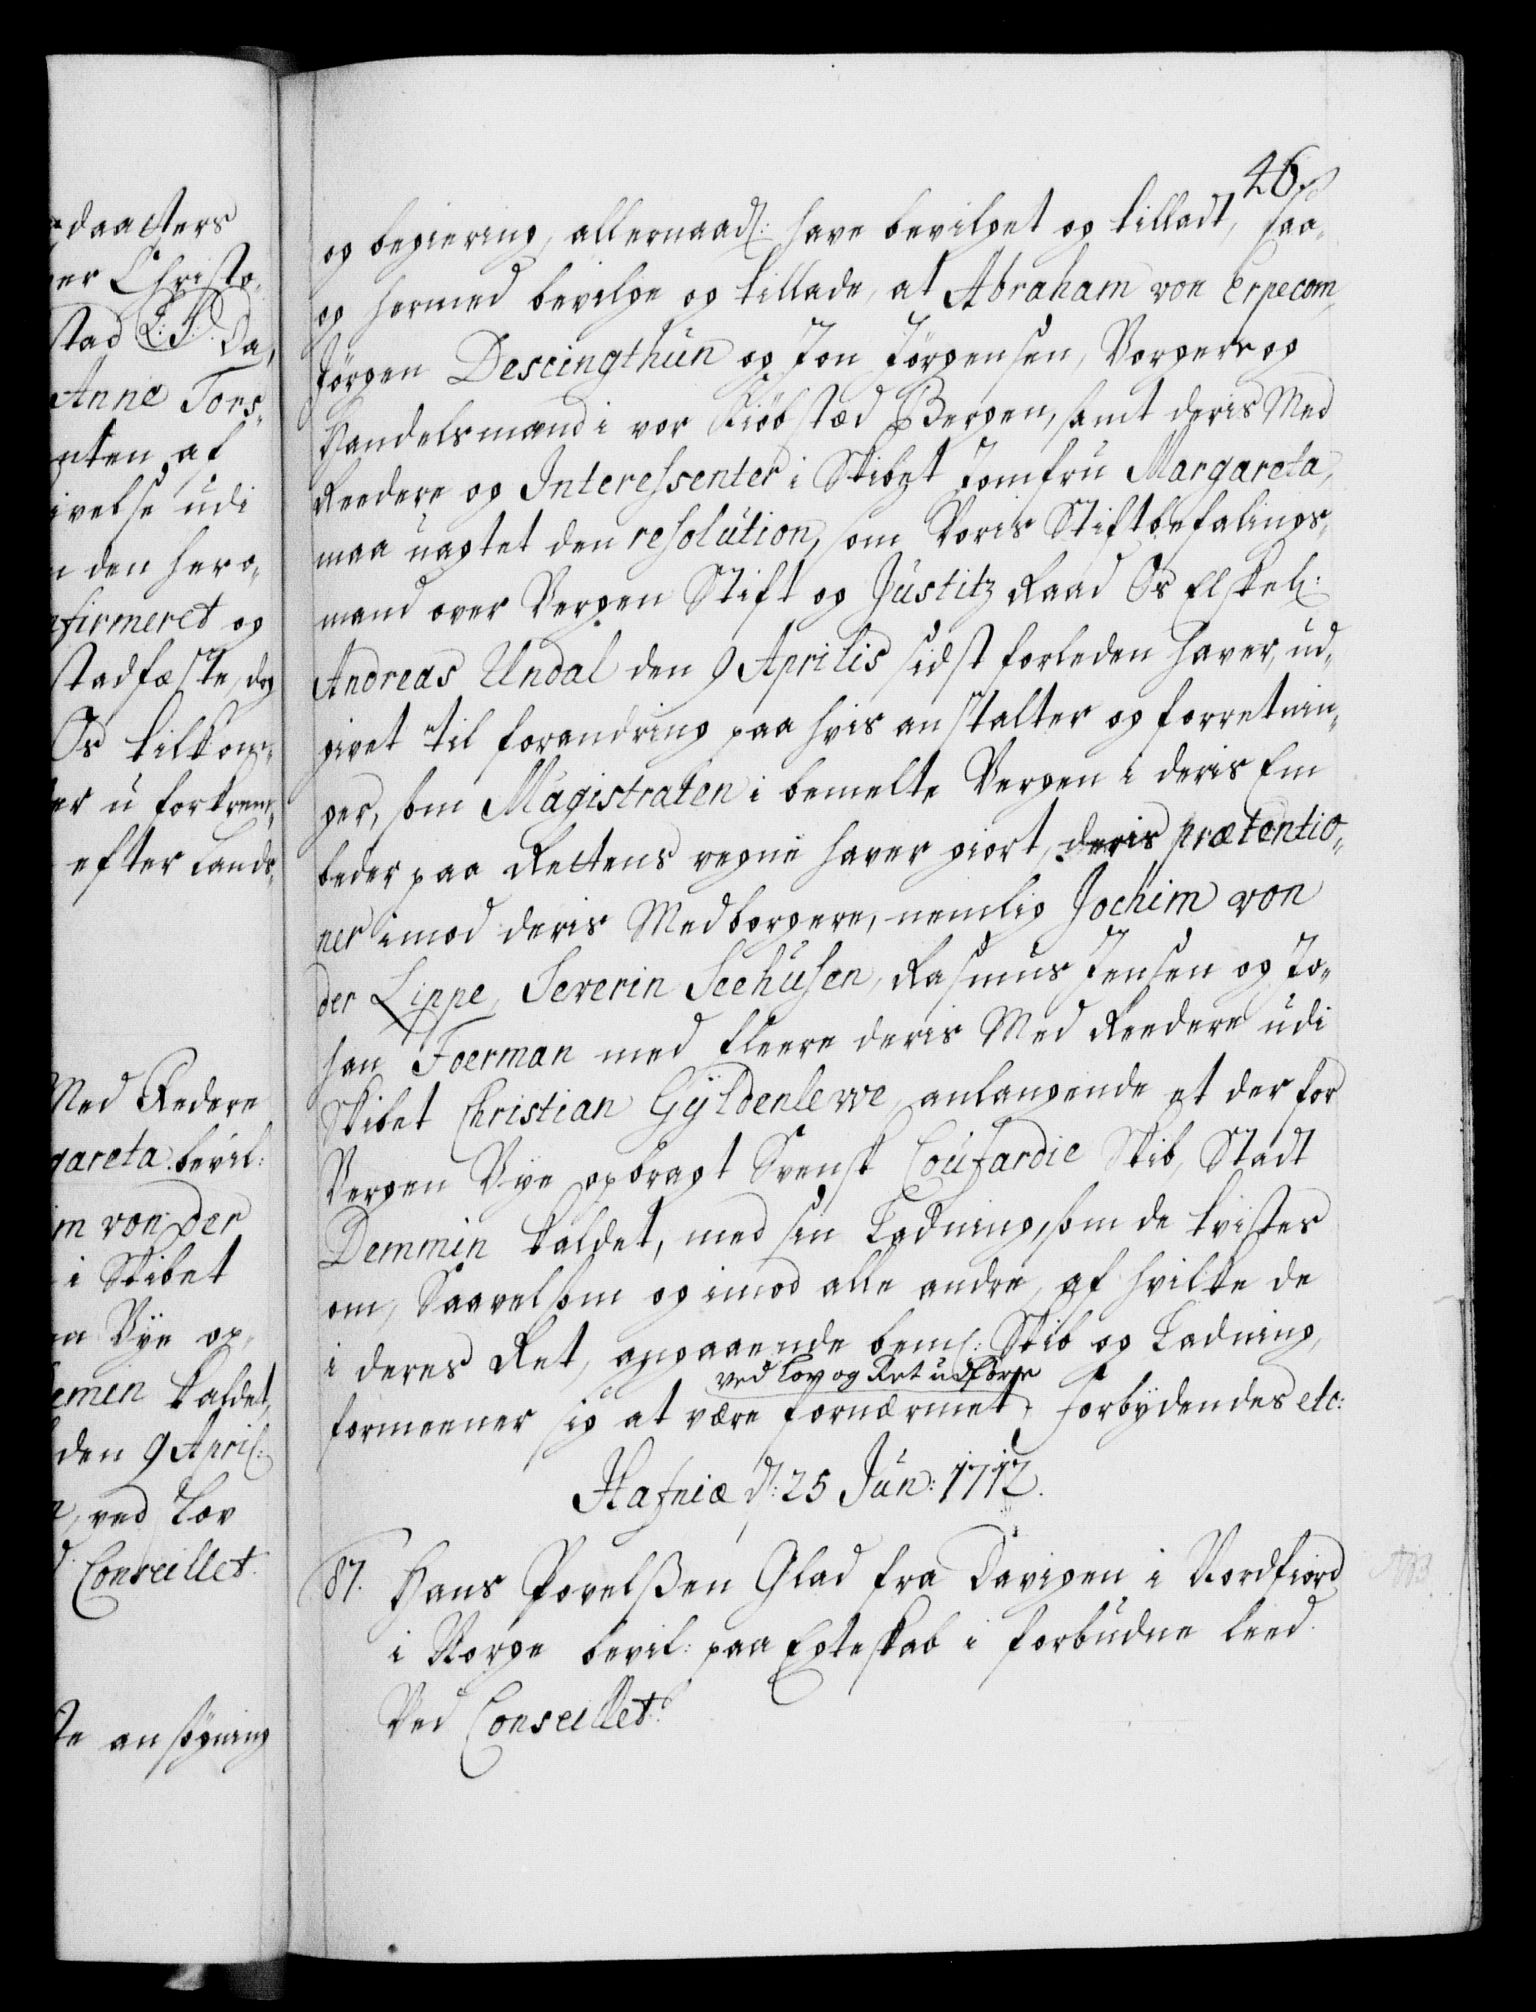 daatters
er Christo-
stad L: S: Da,
Anne Tors-
nten af
ivelse udi
n den hero-
nfirmeret og
stadfæste, dog
Os tilkom-
er u forkren-
efter Lands-
Med Redere
gareta bevil:
im von der
i Skibet
Vije op-
emin kaldet,
den 9 April:
ved Lov
Conseillet.
te ansøgning
46
og begiering, allernaad: have bevilget og tilladt, saa-
og hermed bevilge og tillade, at Abraham von Erpecom,
Jörgen Descingthun og Jon Jörgensen, Borgere og
Handelsmænd i vor Kiöbstæd Bergen, samt deris Med
Reedere og Interessenter i Skibet Jomfru Margareta,
maa uagtet den resolution, som Voris Stiftbefalings-
mand over Bergen Stift og Justitz Raad Os Elskel:
Andreas Undal den 9 Aprilis sidst forleden haver ud-
givet til forandring paa hvis anstalter og forretnin-
ger, som Magistraten i bemelte Bergen i deris Em
beder paa Rettens vegne haver giort, deris prætentio-
ner imod deris Medborgere, nemlig Jochim von
der Lippe, Severin Seehusen, Rasmus Jensen og Jo-
han Foerman med fleere deris Med Reedere udi
Skibet Christian Gyldenlewe, anlangende et der for
Bergen Vije opbragt Svensk Coufardie Skib, Stadt
Demmin kaldet, med sin Ladning, som de tvistes
om, Saavelsom og imod alle andre, af hvilke de
i deres Ret, angaaende bem: Skib og Ladning,
ved Lov og Ret udføre
formeener sig at være fornærmet, Forbydendes etc:
Hafniæ d: 25 Jun: 1712.
87. Hans Povelßen Glad fra Davigen i Nordfiord
i Norge bevil: paa Egteskab i forbudne leed.
Ved Conseillet.